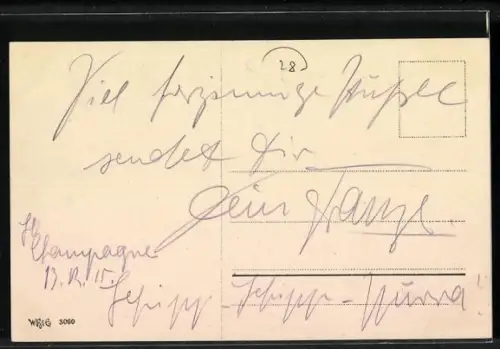 28
Viel herzinnige Bußel
sendet Dir
Dein Franzl.
Champagne
13. 15.
Schipp-Schipp-Hurra!
3060